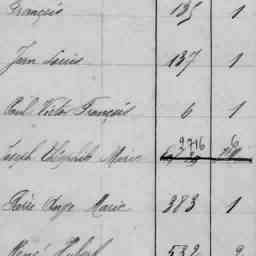 François 135 1
Jean Louis 137 1
Paul Victor François 6 1
Joseph Marie 2716 6
Pierre Ange Marie 383 1
René Hubert 532 2